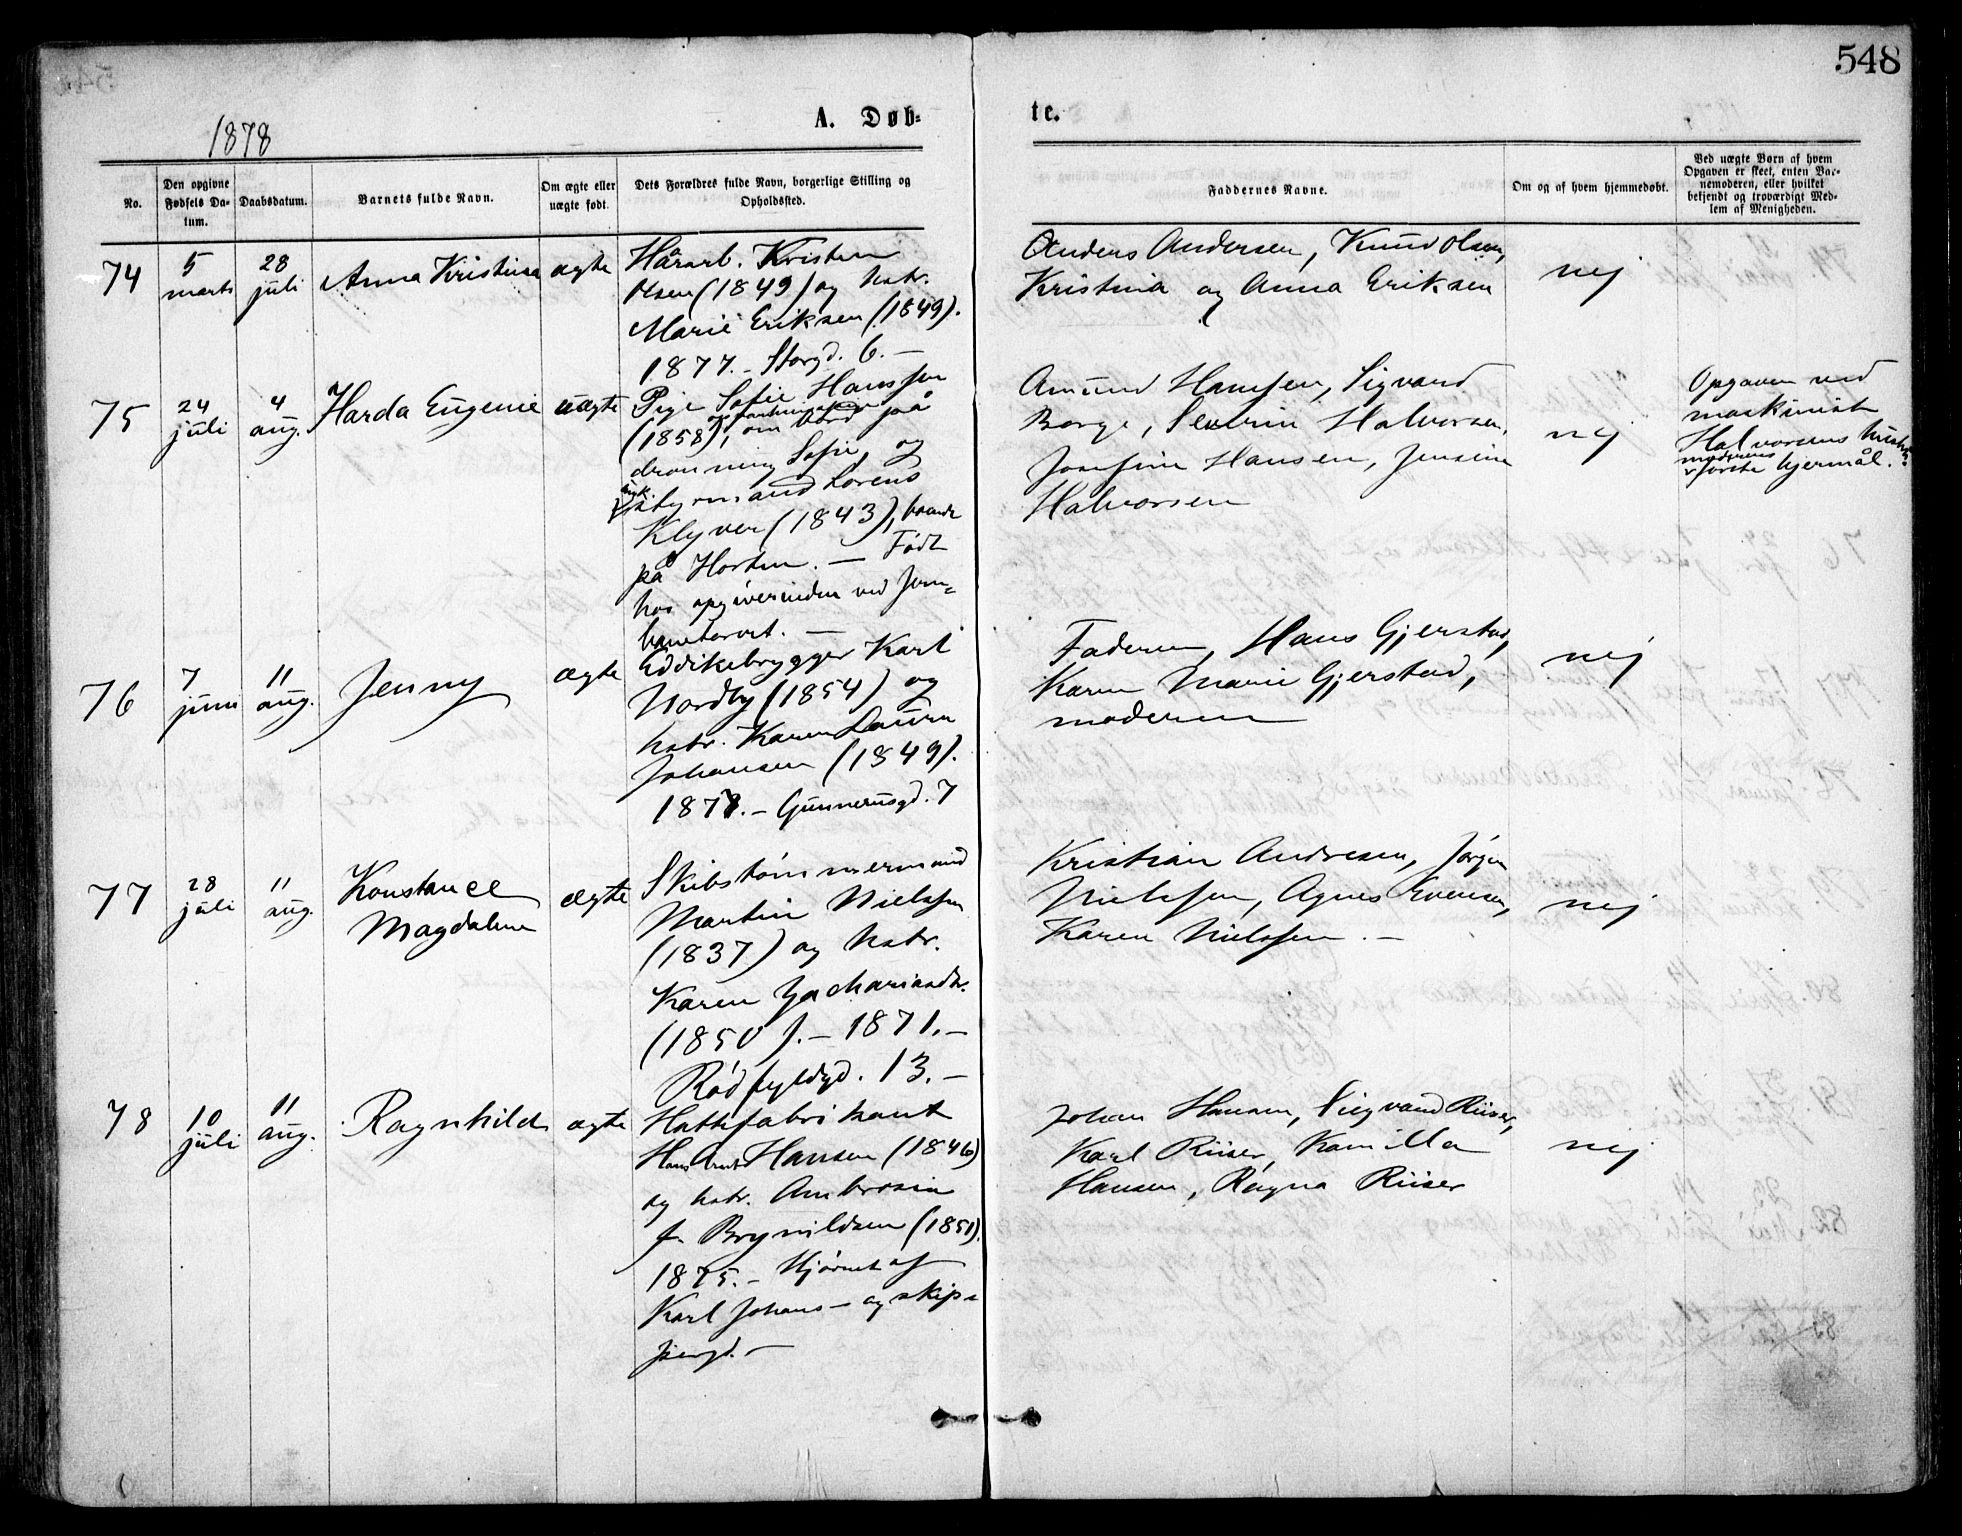 548
1878
A. Døb-
te.
No.
Den opgivne
Fødsels Da-
tum.
Daabsdatum.
Barnets fulde Navn.
Om ægte eller
uægte født.
Dets Forældres fulde Navn, borgerlige Stilling og
Opholdssted.
Faddernes Navne.
Om og af hvem hjemmedøbt.
Ved uægte Børn af hvem
Opgaven er skeet, enten Bar-
nemoderen, eller hvilket
bekjendt og troværdigt Med-
lem af Menigheden.
74
5
marts
28
juli
Anna Kristina
ægte
Kristen
Olsen (1849) og hstr.
Marie Eriksen (1849).
1877. - Storgd. 6. -
Anders Andersen, Knud Olsen,
Kristina og Anna Eriksen
nej
75
24
juli
4
aug.
Harda Eugenie
uægte
Pige Sofie Hanssen
(1858), om bord på
dronning Sofie, og
styrmand Lorens
Klyver (1843),
på Horten. - Født
hos opgiverinden ved Jern-
banetorvet. -
Amund Hansen, Sigvard
Borge, Severin Halvorsen,
Josefine Hansen, Jensine
Halvorsen
nej
Opgaven ved
maskinist
Halvorsens hustru
moderens
første hjermål.
76
7
juni
11
aug.
Jenny
ægte
Eddikebrygger Karl
Nordby (1854) og
hstr. Karen Laura
Johansen (1849).
1878. - Gunnerusgd. 7
Faderen, Hans Gjerstad,
Karen Marie Gjerstad,
moderen
nej
77
28
juli
11
aug.
Konstance
Magdalene
ægte
Skibstømmermand
Martin Nielssen
(1837) og hstr.
Karen Zachariasdtr.
(1850). - 1871. -
Rødfyldgd. 13. -
Kristian Andresen, Jørgen
Nielssen, Agnes Evensen,
Karen Nielssen. -
nej
78
10
juli
11
aug.
Ragnhild
ægte
Hattefabrikant
Hans Hansen (1846)
og hstr. Ambrosia
f. Brynildsen (1851).
1875. - Hjørnet af
Karl Johans- og skip-
pergd. -
Johan Hansen, Sigvard Riiser,
Karl Riiser, Kamilla
Hansen, Ragna Riiser
nej